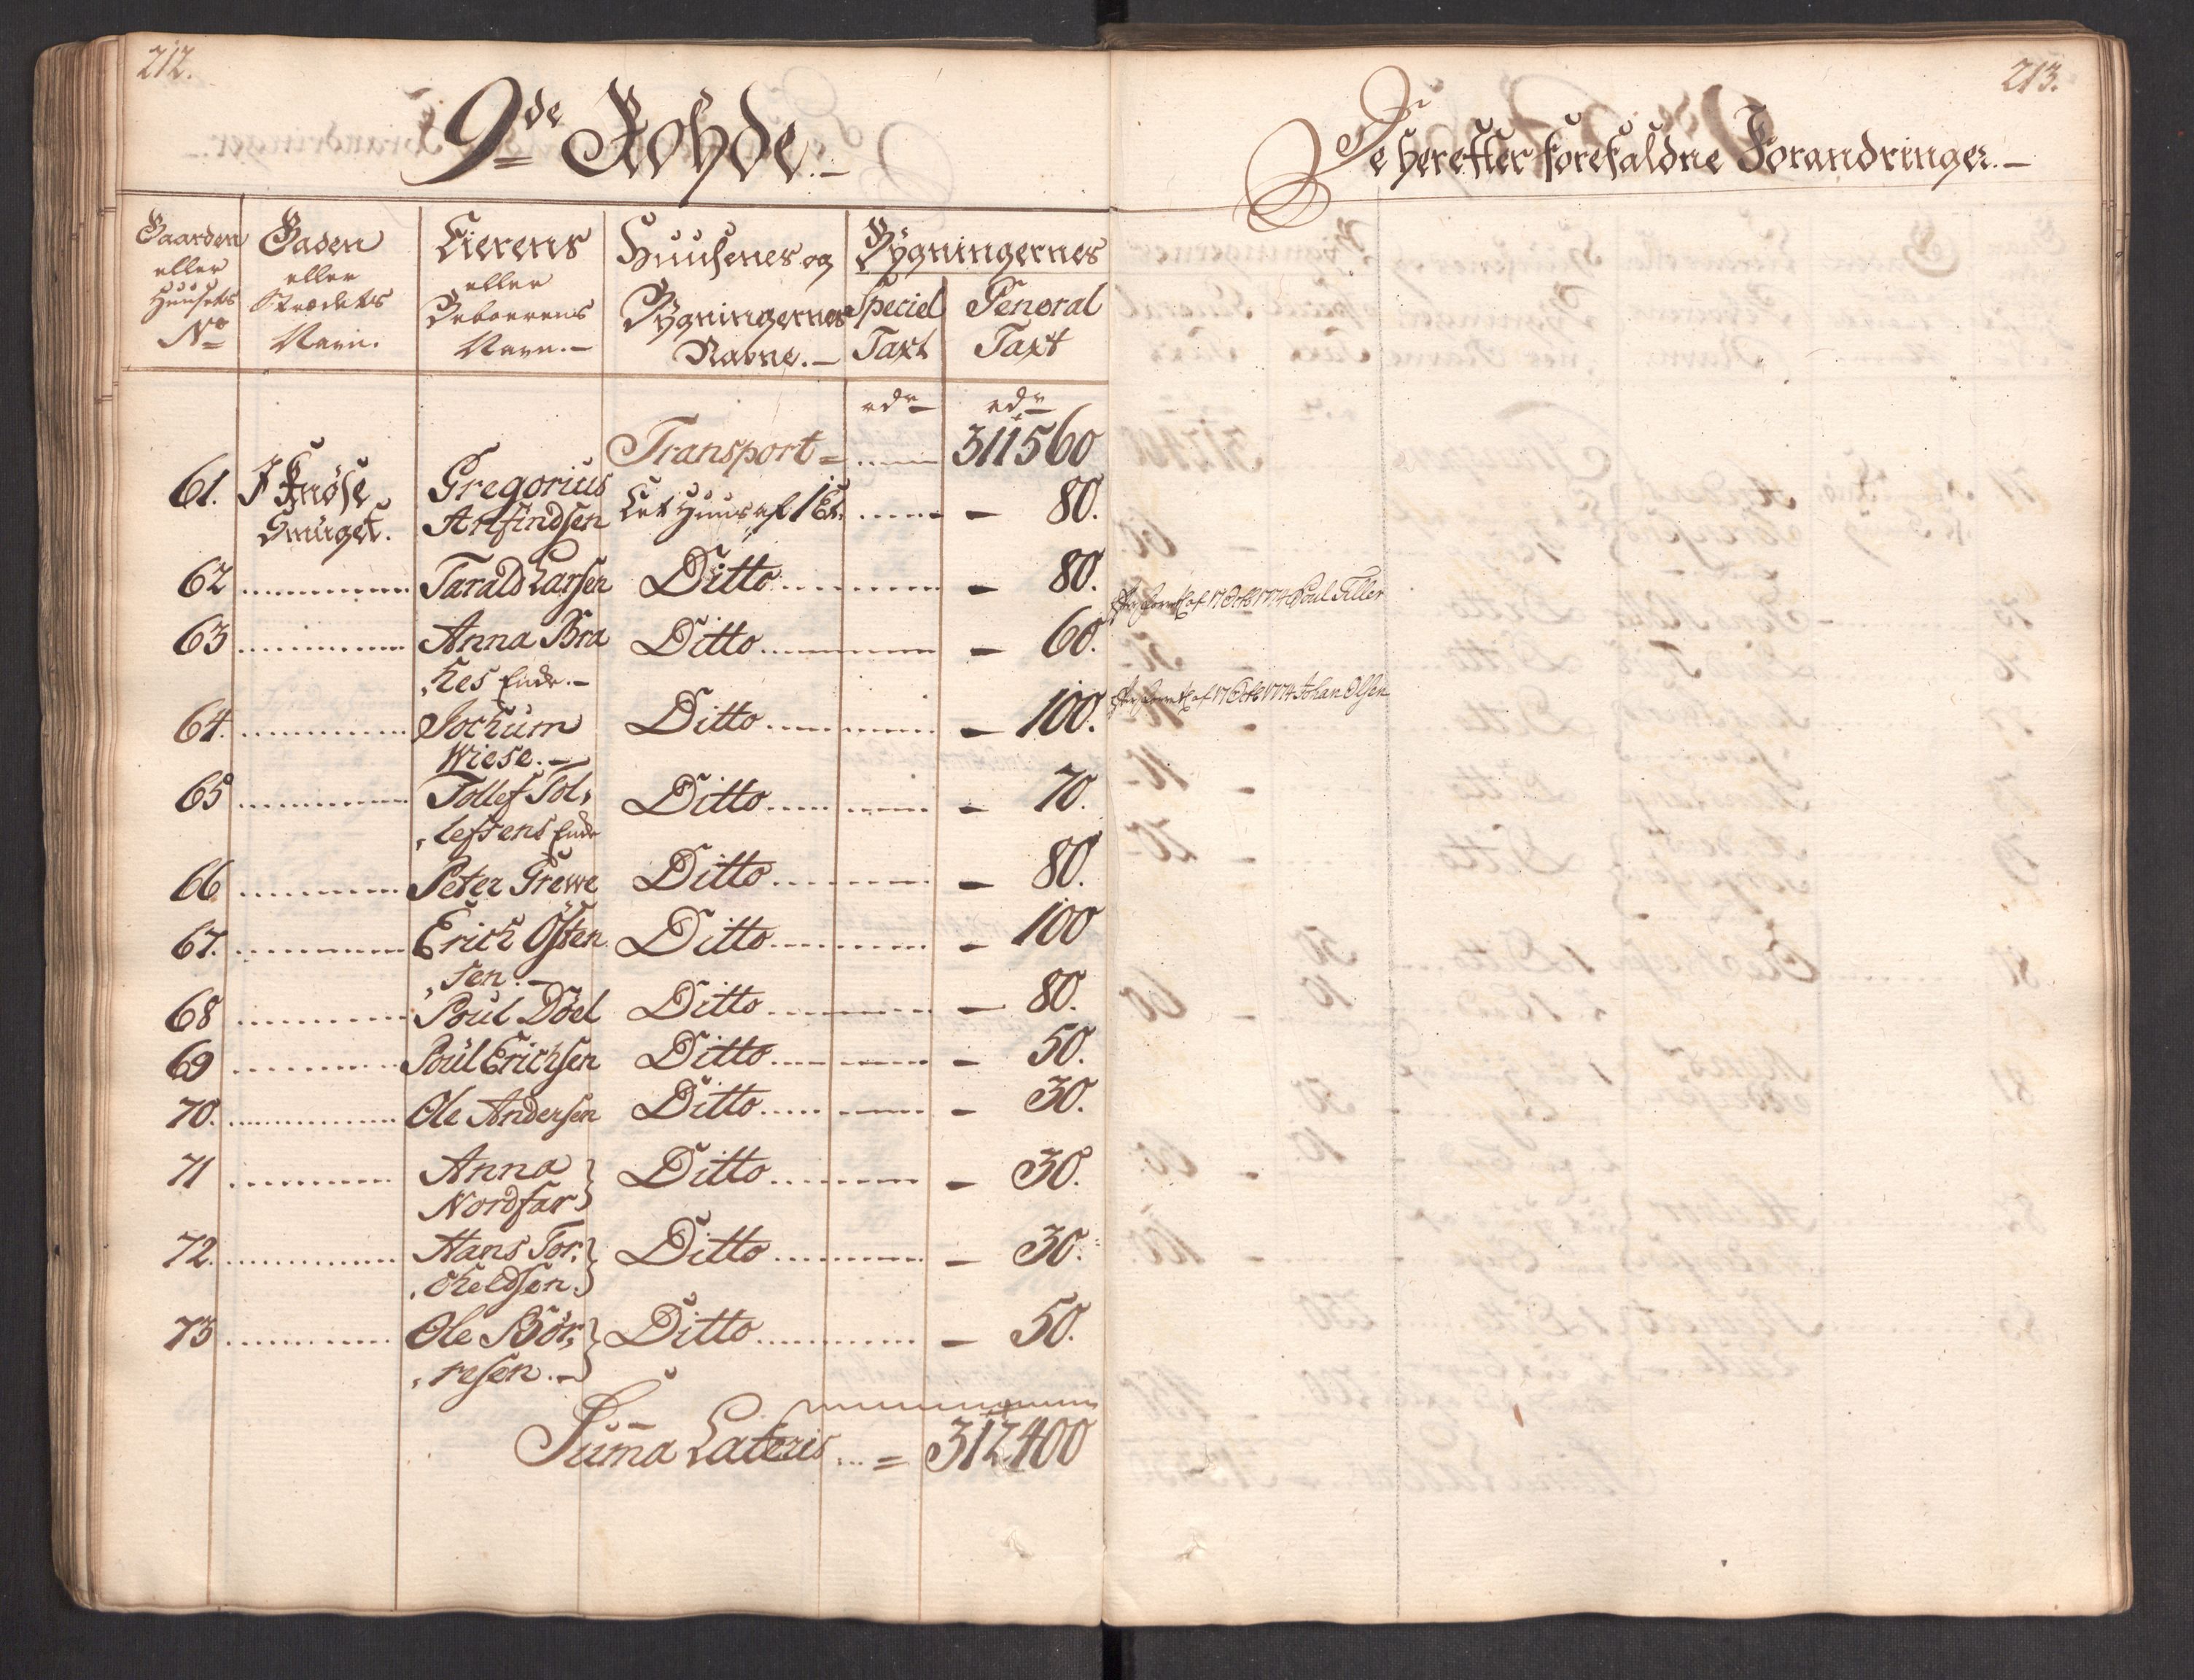 212.
9de Rohde.
Gaarden eller Huusets No
Gaden eller Strædets Navn.
Eierens eller Beboerens Navn.
Huusenes og Bygningernes Navne.
Bygningernes
Speciel Taxt
General Taxt
rdr
rdr
Transport = ...... 311560
61. I Knöse Smuget. Gregorius Arnfindsen Let Huus af 1 Et. ...... - 80.
62 .......... Tarald Larsen Ditto .......... - 80.
63 .......... Anna Bra Ditto .......... - 60.
kes Enke.
64. .......... Jochum Ditto .......... - 100.
Wiese.
65 .......... Tollef Tol, Ditto .......... - 70.
, lefsens Enke
66 .......... Peter Grewe Ditto .......... - 80.
67. .......... Erich Östen Ditto .......... - 100
, sen.
68 .......... Poul Döel Ditto .......... - 80.
69 .......... Poul Erichsen Ditto .......... - 50.
70. .......... Ole Andersen Ditto .......... - 30.
71 .......... Anna Ditto .......... - 30.
Nordfar
72. .......... Hans Tor, Ditto .......... - 30.
, cheldsen.
73 .......... Ole Bör, Ditto .......... - 50.
, resen.
Suma Lateris ... = 312400
213.
De herefter forefaldne Forandringer.
af 17 Octb 1774 Poul Filler
af 17 Octb 1774 Johan Olsen